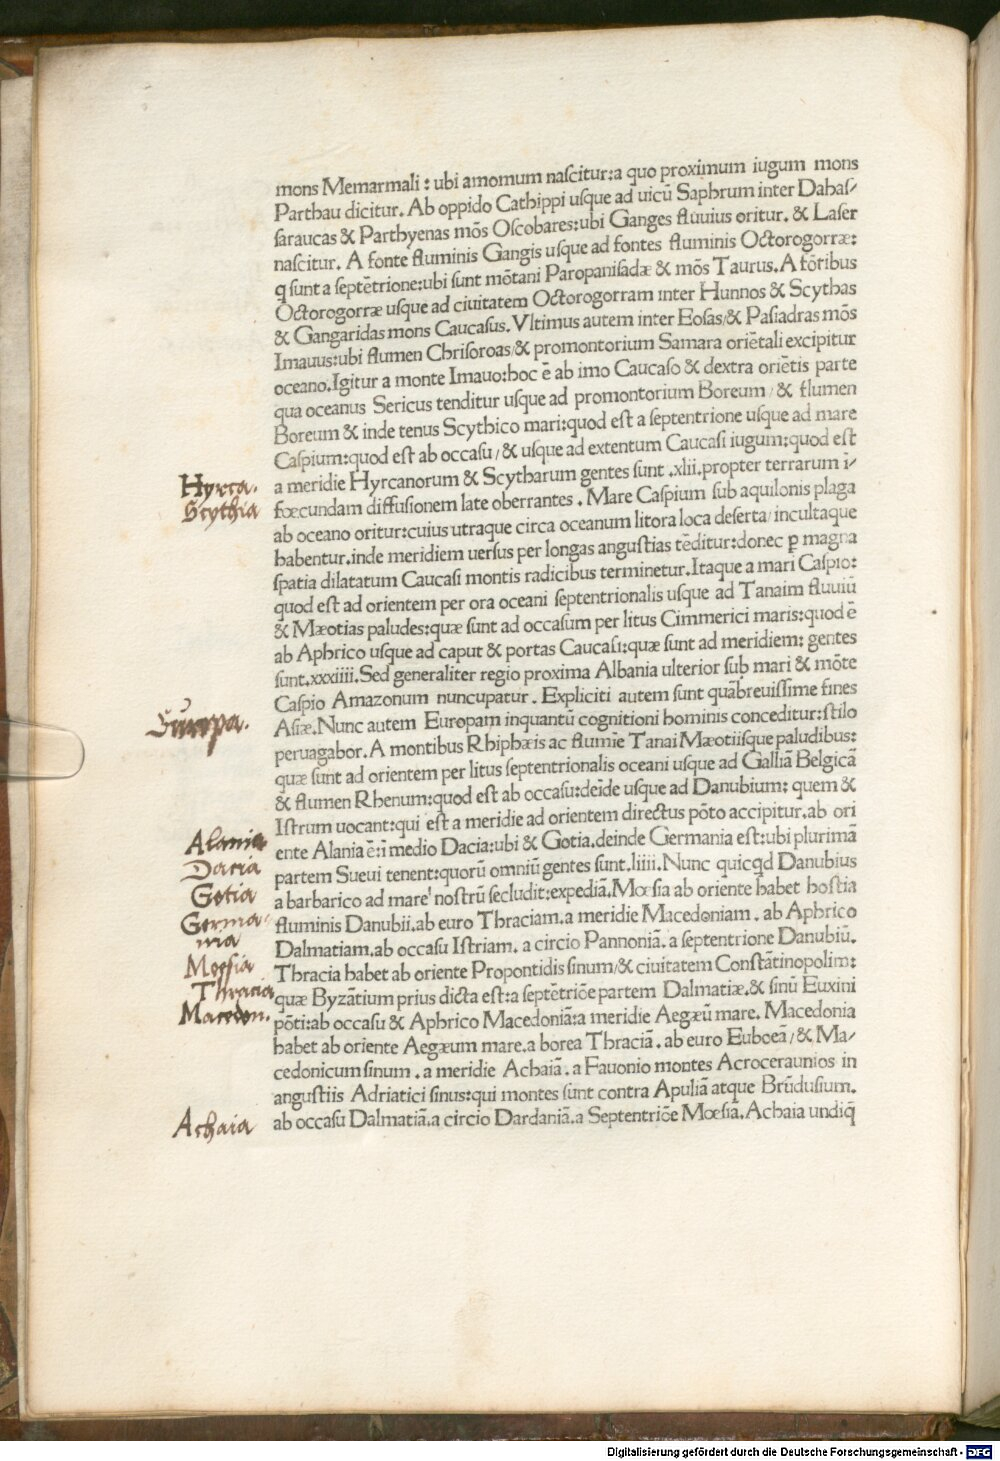 mons Memarmali : ubi amomum nascitur:a quo proximum iugum mons
Parthau dicitur. Ab oppido Cathippi usque ad uicū Saphrum inter Dahas/
saraucas & Parthyenas mōs Oscobares:ubi Ganges fluuius oritur. & Laser
nascitur. A fonte fluminis Gangis usque ad fontes fluminis Octorogorræ:
q sunt a septētrione:ubi sunt mōtani Paropanisadæ & mōs Taurus. A fōtibus
Octorogorræ usque ad ciuitatem Octorogorram inter Hunnos & Scythas
& Gangaridas mons Caucasus. Vltimus autem inter Eosas/& Pasiadras mōs
Imauus:ubi flumen Chrisoroas/& promontorium Samara oriētali excipitur
oceano. Igitur a monte Imauo:hoc ē ab imo Caucaso & dextra oriētis parte
qua oceanus Sericus tenditur usque ad promontorium Boreum / & flumen
Boreum & inde tenus Scythico mari:quod est a septentrione usque ad mare
Caspium:quod est ab occasu / & usque ad extentum Caucasi iugum:quod est
Hyrca.
a meridie Hyrcanorum & Scytharum gentes sunt .xlii. propter terrarum ī/
Scythia
fœcundam diffusionem late oberrantes . Mare Caspium sub aquilonis plaga
ab oceano oritur:cuius utraque circa oceanum litora loca deserta/ incultaque
habentur. inde meridiem uersus per longas angustias tēditur:donec ꝑ magna
spatia dilatatum Caucasi montis radicibus terminetur. Itaque a mari Caspio:
quod est ad orientem per ora oceani septentrionalis usque ad Tanaim fluuiū
& Mæotias paludes:quæ sunt ad occasum per litus Cimmerici maris:quod ē
ab Aphrico usque ad caput & portas Caucasi:quæ sunt ad meridiem: gentes
sunt.xxxiiii. Sed generaliter regio proxima Albania ulterior sub mari & mōte
Caspio Amazonum nuncupatur . Expliciti autem sunt quābreuissime fines
Europa.
Asiæ. Nunc autem Europam inquantū cognitioni hominis conceditur:stilo
peruagabor. A montibus Rhiphæis ac flumīe Tanai Mæotiisque paludibus:
quæ sunt ad orientem per litus septentrionalis oceani usque ad Galliā Belgicā
& flumen Rhenum:quod est ab occasu:deīde usque ad Danubium: quem &
Istrum uocant:qui est a meridie ad orientem directus pōto accipitur. ab ori
Alania
ente Alania ē:ī medio Dacia:ubi & Gotia. deinde Germania est:ubi plurimā
Dacia
partem Sueui tenent:quorū omniū gentes sunt .liiii. Nunc quicqd Danubius
Gotia
a barbarico ad mare nostrū secludit:expediā. Mœsia ab oriente habet hostia
Germa-
fluminis Danubii. ab euro Thraciam. a meridie Macedoniam . ab Aphrico
nia
Dalmatiam. ab occasu Istriam. a circio Pannoniā. a septentrione Danubiū.
Moesia
Thracia habet ab oriente Propontidis sinum/& ciuitatem Constātinopolim:
Thracia
quæ Byzātium prius dicta est:a septētriōe partem Dalmatiæ. & sinū Euxini
Macedon.
pōti:ab occasu & Aphrico Macedoniā:a meridie Aegæū mare. Macedonia
habet ab oriente Aegæum mare. a borea Thraciā . ab euro Euboeā / & Ma/
cedonicum sinum . a meridie Achaiā. a Fauonio montes Acroceraunios in
angustiis Adriatici sinus:qui montes sunt contra Apuliā atque Brūdusium.
Achaia
ab occasu Dalmatiā. a circio Dardaniā. a Septentriōe Mœsiā. Achaia undiq̄
Digitalisierung gefördert durch die Deutsche Forschungsgemeinschaft - DFG